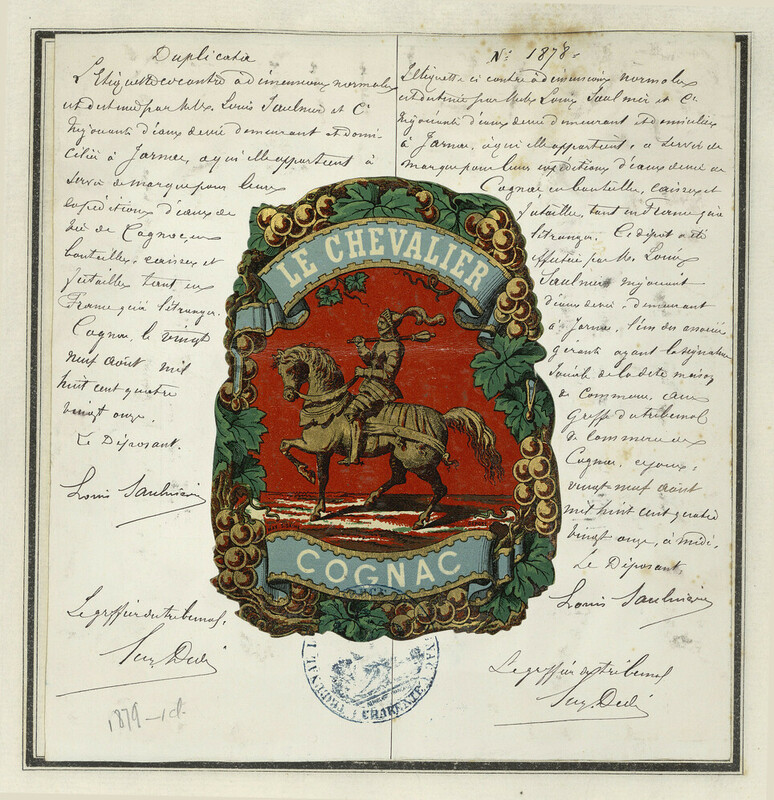 Duplicata
L'Etiquette ci contre a dimensions normales
et destinée par MMrs Louis Saulnier et Cie
Négociants d'eaux de vie demeurant et domi-
ciliés à Jarnac, à qui elle appartient à
servir de marque pour leurs
expéditions d'eaux de
vie de Cognac, en
bouteilles, caisses et
futailles tant en
France qu'à l'étranger.
Cognac, le vingt
neuf août mil
huit cent quatre
vingt onze.
Le Déposant.
Louis Saulnier
Le greffier du tribunal,
1879 - id.
LE CHEVALIER
COGNAC
No 1878.
L'Etiquette ci contre a dimensions normales
est destinée par MMrs Louis Saulnier et Cie
Négociants d'eaux de vie demeurant et domiciliés
à Jarnac, à qui elle appartient, à servir de
marque pour leurs expéditions d'eaux de vie de
Cognac, en bouteilles, caisses et
futailles, tant en France qu'à
l'étranger. Ce dépôt a été
effectué par Mr Louis
Saulnier négociant
d'eaux de vie, demeurant
à Jarnac, l'un des associés
gérants ayant la signature
sociale de la dite maison
de commerce, au
Greffe du tribunal
de commerce de
Cognac, ce jour,
vingt neuf août
mil huit cent quatre
vingt onze, à midi.
Le Déposant,
Louis Saulnier
Le greffier du tribunal
CHARENTE